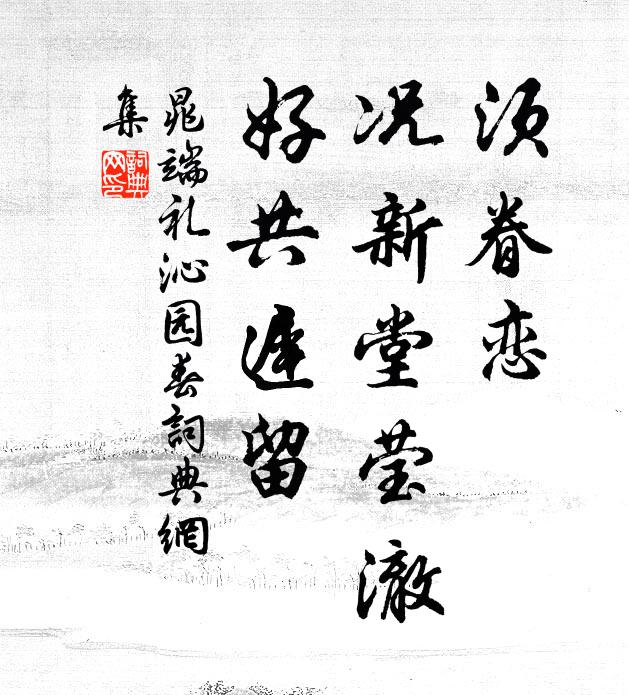 须眷恋
况新堂莹澈
好共遲留
晁端礼沁园春詞典網
集
詞典
网印